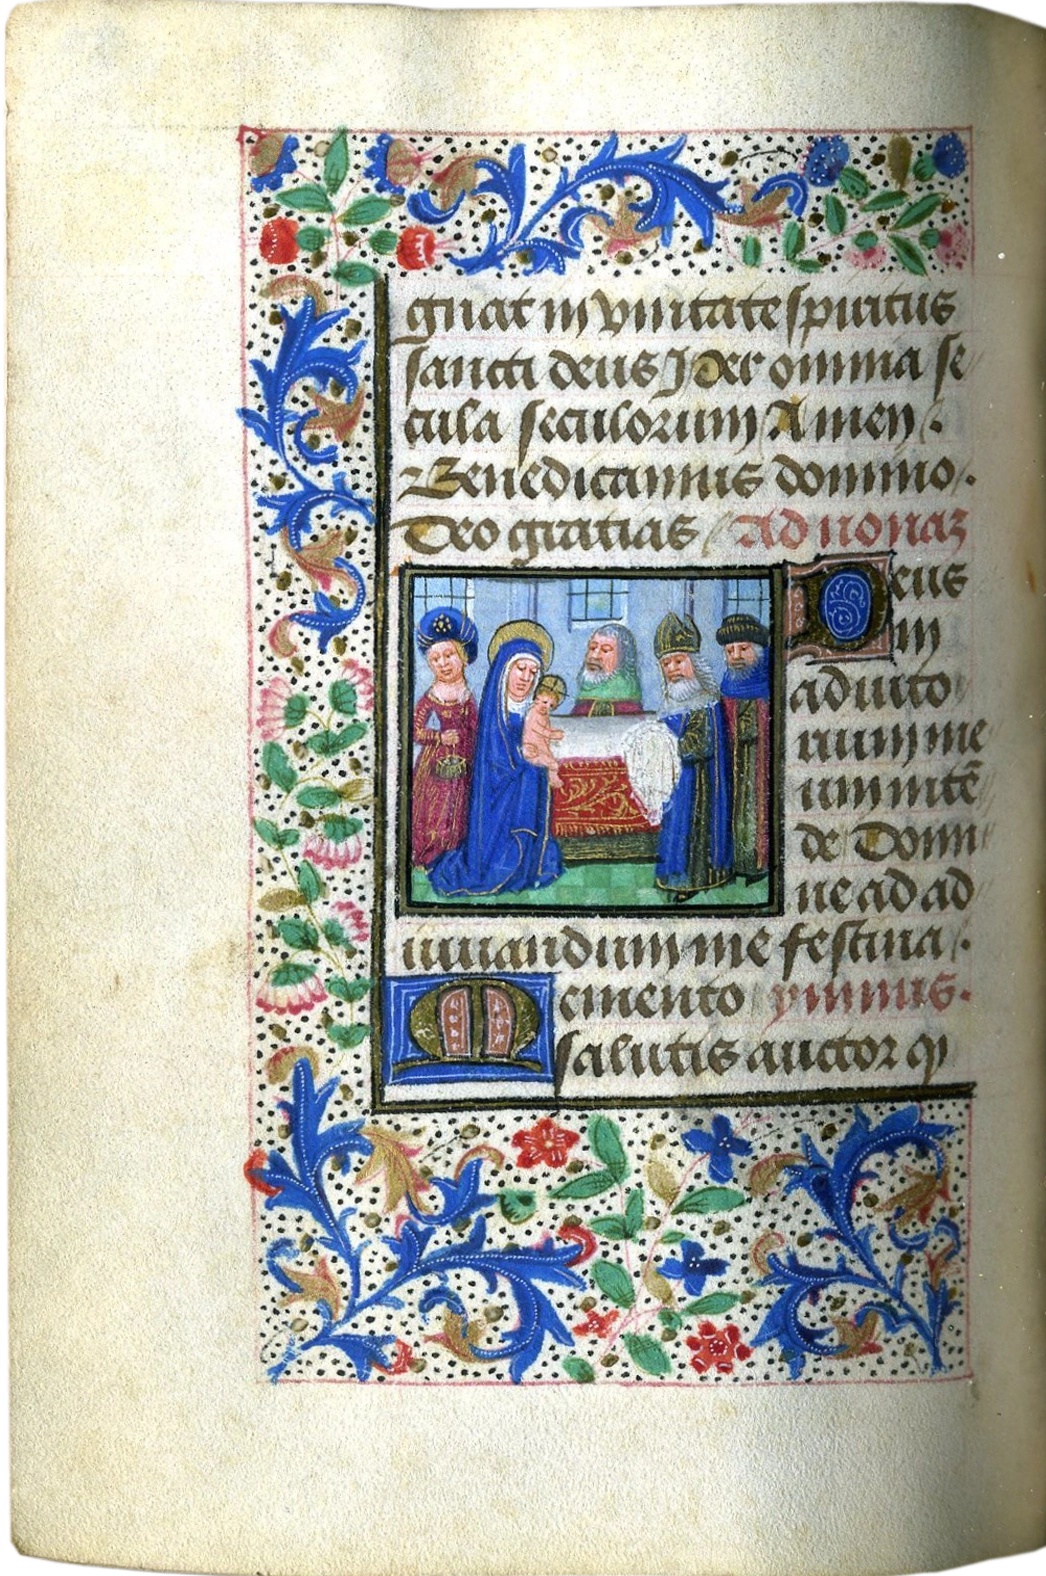 gnat in vnitate spiritus
sancti deus Per omnia se
cula seculorum Amen.
Benedicamus domino.
Deo gratias Ad nonaz
Deus
in
adiuto
rium me
um intē
de Domi
ne ad ad
iuuandum me festina.
Memento ymnus.
salutis auctor q